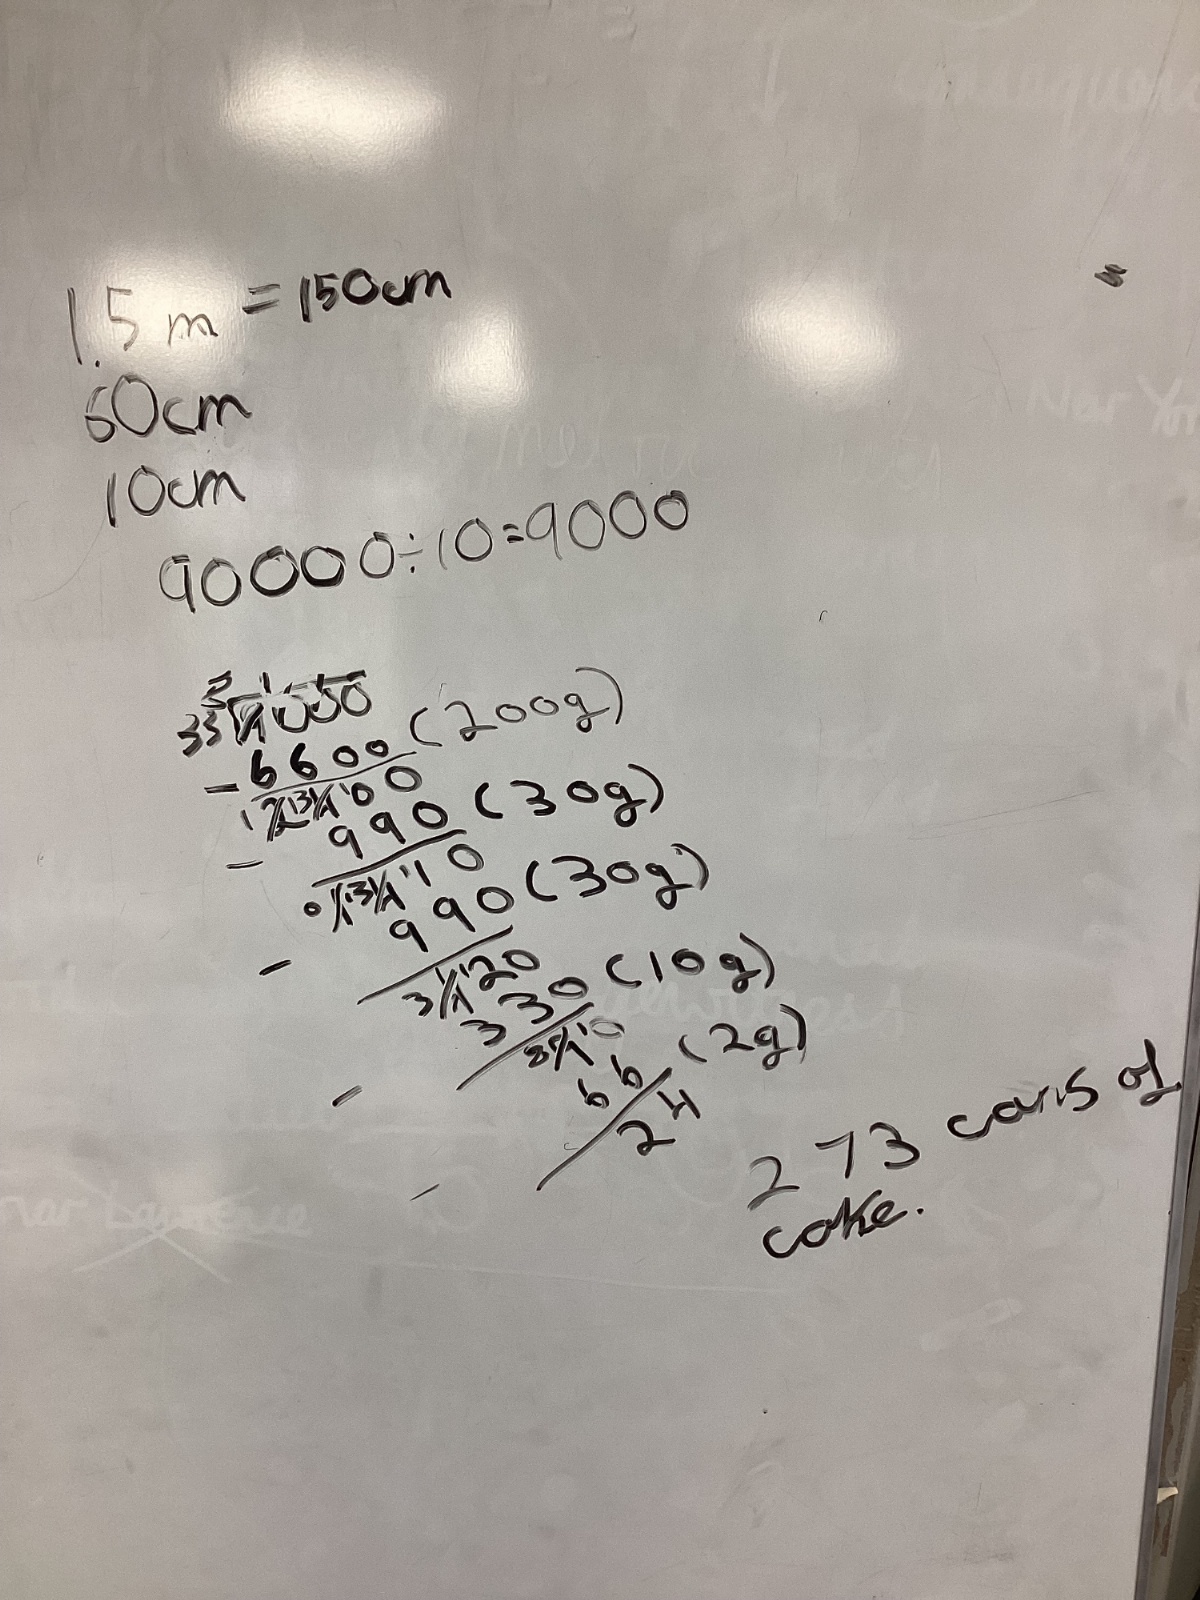 1.5 m = 150cm
60cm
10cm
90000÷10=9000
33 9000
- 6600 (200g)
2400
- 990 (30g)
1410
- 990 (30g)
420
- 330 (10g)
90
- 66 (2g)
24
273 cans of
coke.
consequen
New Yor
Lawrence